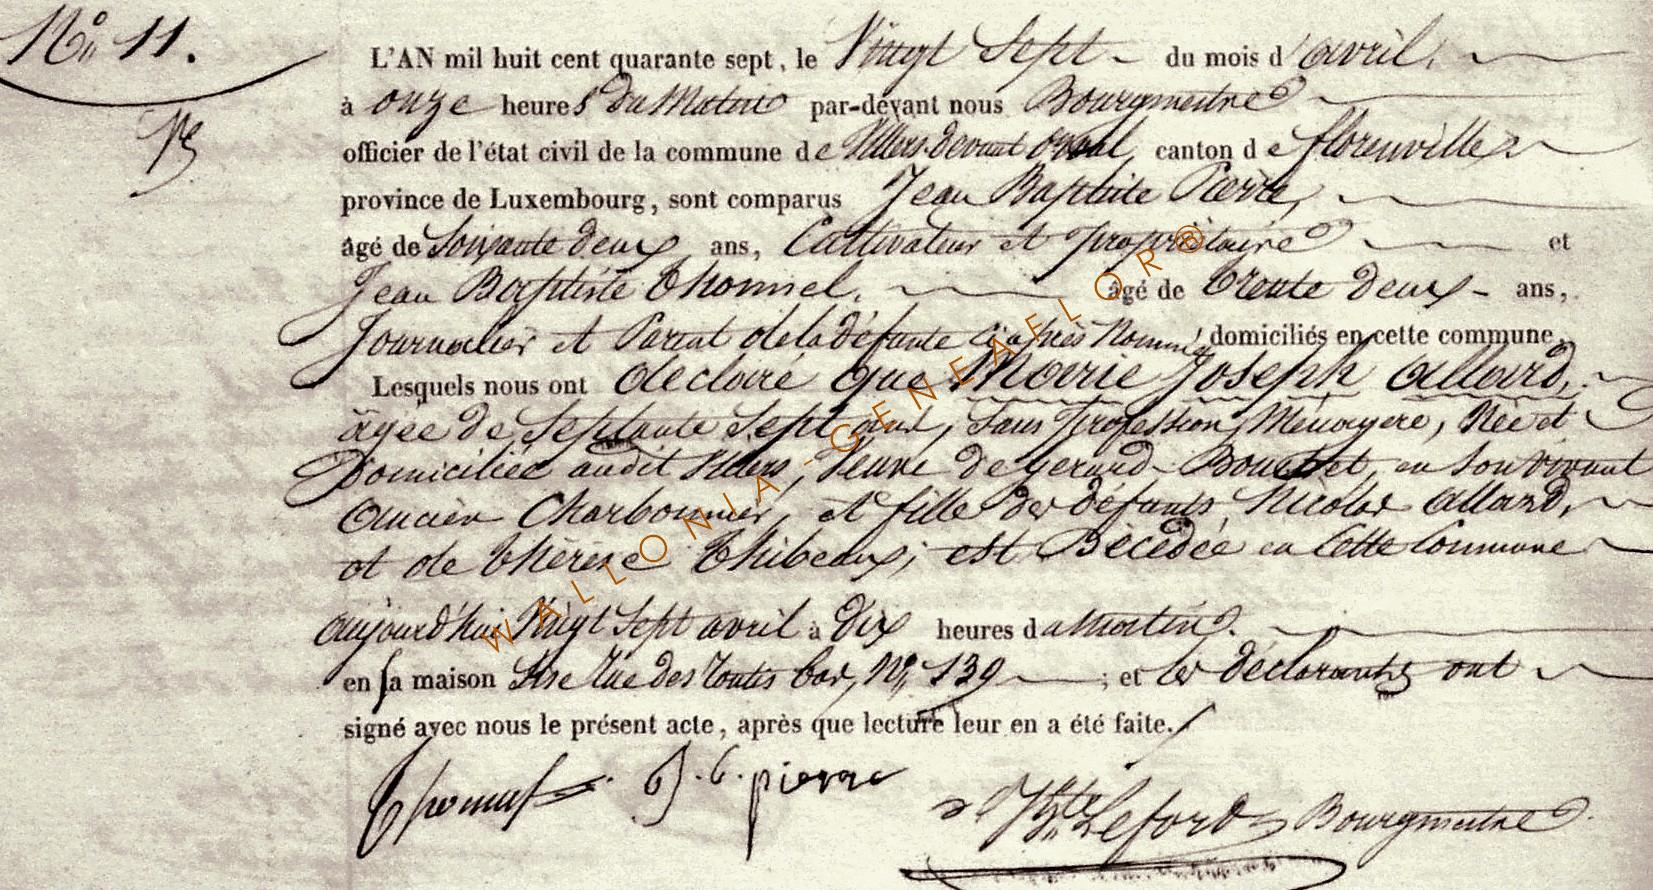 N° 11.
L'AN mil huit cent quarante sept, le Vingt Sept du mois d'avril,
à onze heures du Matin par-devant nous Bourgmestre
officier de l'état civil de la commune de Villers devant orval, canton de florenville,
province de Luxembourg, sont comparus Jean Baptiste Pierre,
âgé de Soixante deux ans, Cultivateur et propriétaire et
Jean Baptiste thomnel, âgé de trente deux ans,
Journalier et Parent de la défunte ci après Nommé, domiciliés en cette commune,
Lesquels nous ont déclaré que Marie Joseph allard,
âgée de Septante Sept ans, Sans Profession, Ménagère, Née et
Domiciliée audit Villers, Veuve de gerard en Son vivant
ancien Charbonnier, et fille des défunts Nicolas allard,
et de thérèse thibeaux; est Décédée en Cette Commune
aujourd'hui Vingt Sept avril à dix heures du Matin.
en sa maison Sise Rue des toutes bas, N° 139; et les déclarants ont
signé avec nous le présent acte, après que lecture leur en a été faite.
J. B. pierre
Lefort Bourgmestre
WALLONIA-GENEAFLOR®